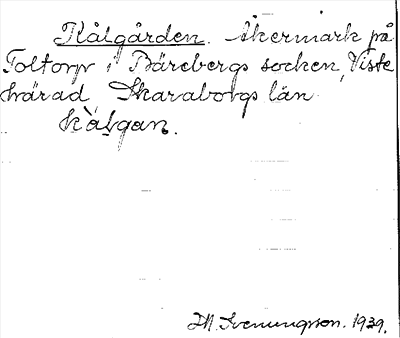 Kålgården. Åkermark på
Foltorp i Bärebergs socken, Viste
härad, Skaraborgs län.
kàlgan.
M. Svenungson. 1939.